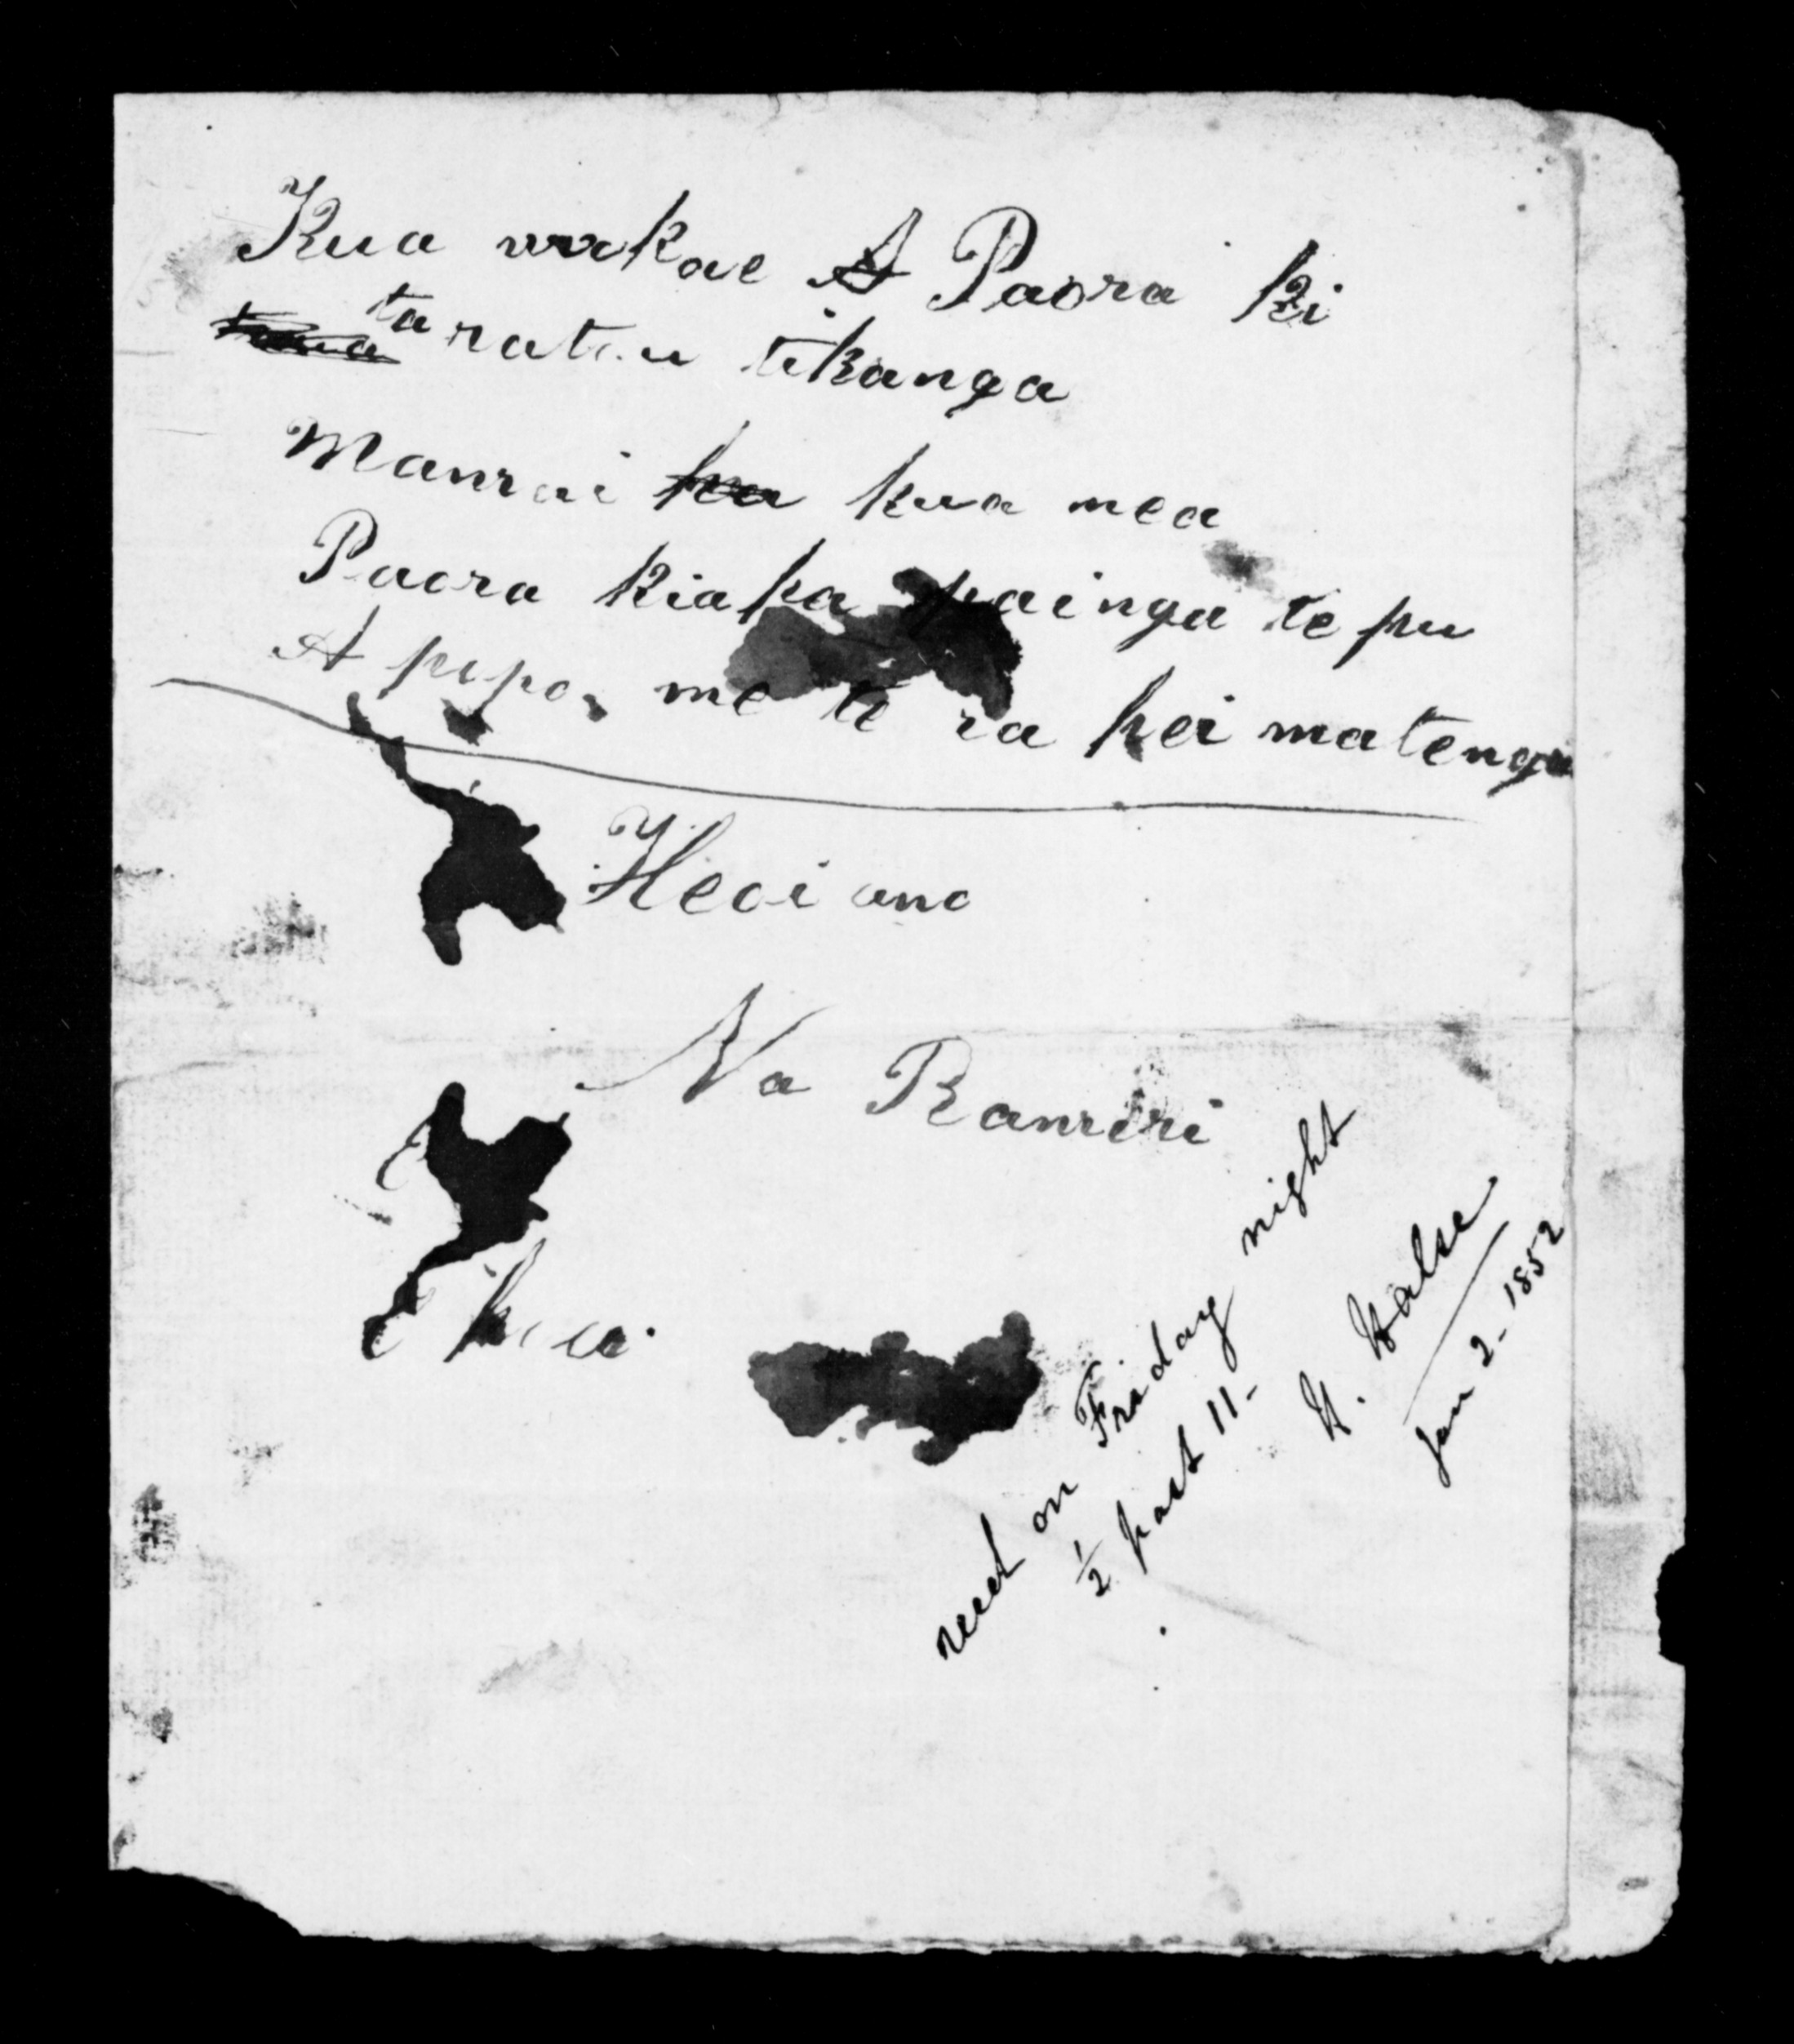 Kua wakae A Paora ki
taratou tikanga
Manrai kua mea
Paora kia ka painga te pu
A pipo, me te ra hei matenga
Heoi ano
Na Ranieri
E hu
recd on Friday night
½ past 11-
H. Halse
Jan 2 - 1852